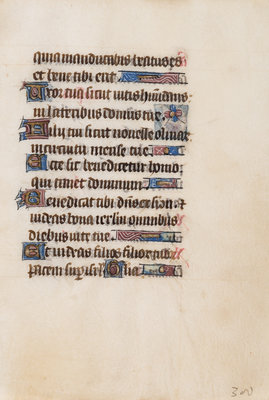 quia manducabis beatus es
et bene tibi erit
Uxor tua sicut vitis habundans
in lateribus domus tue
Filii tui sicut novelle olivar
in circuitu mense tue
Ecce sic benedicetur homo
qui timet dominum
Benedicat tibi dns ex syon et
videas bona ierlm omnibus
diebus vite tue
Et videas filios filiorum
pacem super isrl Glia